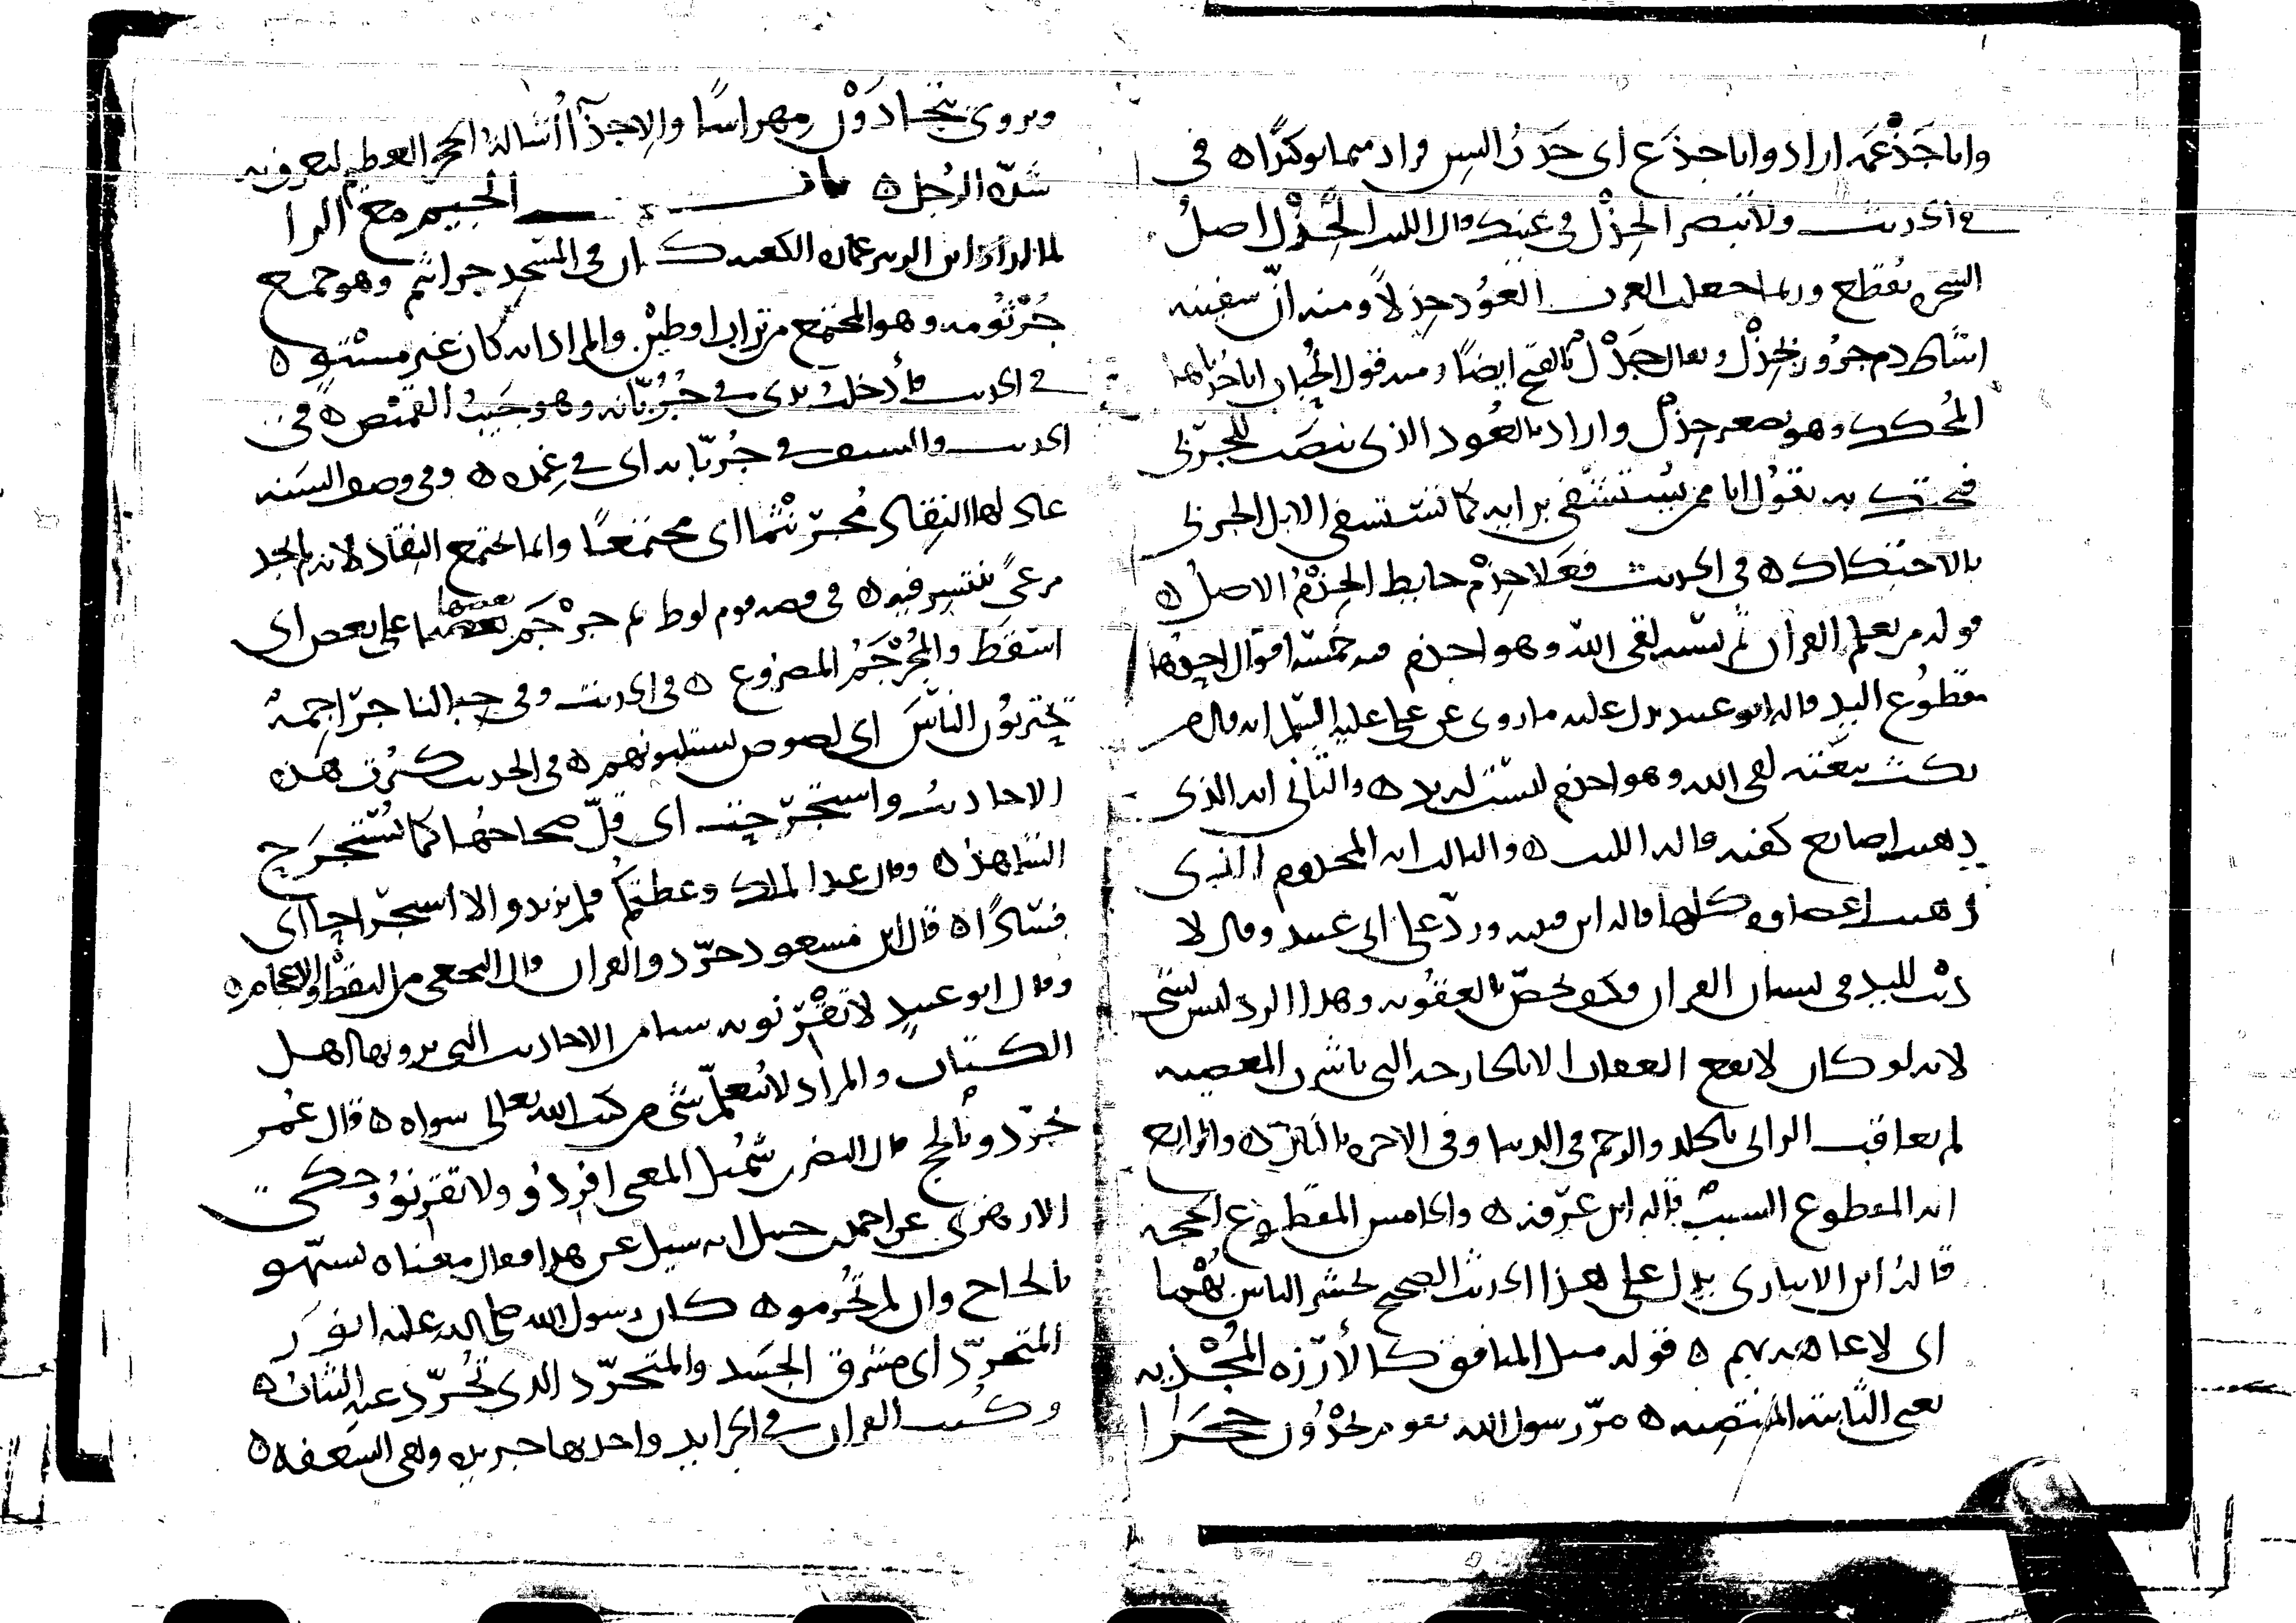 وانا جَذْعَمه اراد وانا جذع اى حَدَث السن فزاد ميما توكيدًا ه فى
فى الحديث ولا تبصر الجِذْل فى عينك قال الليث الجِذْل اصلُ
الشجره تُقطع وربما جعلت العرب العُود جذلًا ومنه انّ سفينه
اشاط دم جزور بجِذْل ويقال جَذْل بالفتح ايضًا ومنه قول الحُباب انا جُذيلها
المُحكك وهو تصغير جذل واراد بالعُود الذى ينصَب للجَرْبَى
فتحتك به يقول انا ممن يُستشفى برايه كما تستشفى الابل الجربى
بالاحتكاك ه فى الحديث فعَلا جِذْم حايط الجِذْمُ الاصلُ ه
قوله من تعلم القران ثم نسيه لقى الله وهو اجذم فيه خمسه اقوال احدها
مقطوع اليد قاله ابو عبيد يدل عليه ما روى عن على عليه السلم انه قال من
نكث بيعَته لقى الله وهو اجذم ليست له يد ه والثانى انه الذى
ذهبت اصابع كفيه قاله الليث ه والثالث انه المجذوم الذى
ذهبت اعضاوه كلها قاله ابن قتيبه وردّ على ابى عبيد وقال لا
ذنب لليد فى نسيان القران وكيف تخصّ بالعقوبه وهذا الرد ليس بشى
لانه لو كان لا يقع العقاب الا بالجارحه التى باشرت المعصيه
لم يعاقب الزانى بالجلد والرجم فى الدنيا وفى الاخره بالنار ه والرابع
انه المقطوع السبب قاله ابن عَرَفه ه والخامس المقطوع الحجه
قاله ابن الانبارى يدل على هذا الحديث الصحيح يحشر الناس بُهْما
اى لا عاهه بهم ه قوله مثل المنافق كالأرْزه المُجْذيه
يعنى الثابته المنتصبه ه مرّ رسول الله بقوم يُجْذُون حَجَرا
ويروى يتجاذَوْن مِهراسًا والاجذآ اشالة الحجر العظيم ليعرف به
شدّه الرجل ه باب الجيم مع الرا
لما اراد ابن الزبير عمارة الكعبه كان فى المسجد جراثيم وهو جمع
جُرْثُومه وهو المجتمع من تراب او طين والمراد انه كان غير مستوٍ ه
فى الحديث فأدخلت يدى فى جُرُبّانه وهو جَيبُ القميص ه فى
الحديث والسيف فى جُربّانه اى فى غِمده ه وفى وصف السَنه
عاد لها النِقاد مُجرَنْثما اى مجتمعًا وانما تجتمع النقاد لانه لم تجد
مرعىً تنتشر فيه ه فى قصه قوم لوط ثم جَرْجَم بعضها على بعض اى
اسقَط والمُجَرْجَمُ المصروع ه فى الحديث وفى جبالنا جراجمة
يحتربون الناسَ اى لصوص يستلبونهم ه فى الحديث كثرت هذه
الاحاديث واستجرَحت اى قلّ صحاحُها كما يُستجرَح
الشاهد ه وقال عبد الملك وعظتكُم فلم تزدادوا الا استجراحا اى
فسَادًا ه قال ابن مسعود جرّدوا القران قال النخعى من النقط والاعجام ه
وقال ابو عبيد لا تقرنوا به شيا من الاحاديث التى يرويها اهل
الكتاب والمراد لا يُتعلّم شى من كتب الله تعالى سواه ه قال عُمر
جَرّدوا بالحج قال النضر بن شُميل المعنى افرِدُوا ولا تقرنُوا وحكى
الازهرى عن احمد بن حنبل انه سيل عن هذا فقال معناه تشبهو
بالحاج وان لم تُحرموا ه كان رسول الله صلى الله عليه انوَر
المتجرّد اى مشرق الجَسَد والمتجرّد الذى تُجرّد عنه الثياب ه
وكُتب القران فى الجرايد واحدتها جريده وهى السَعَفه ه